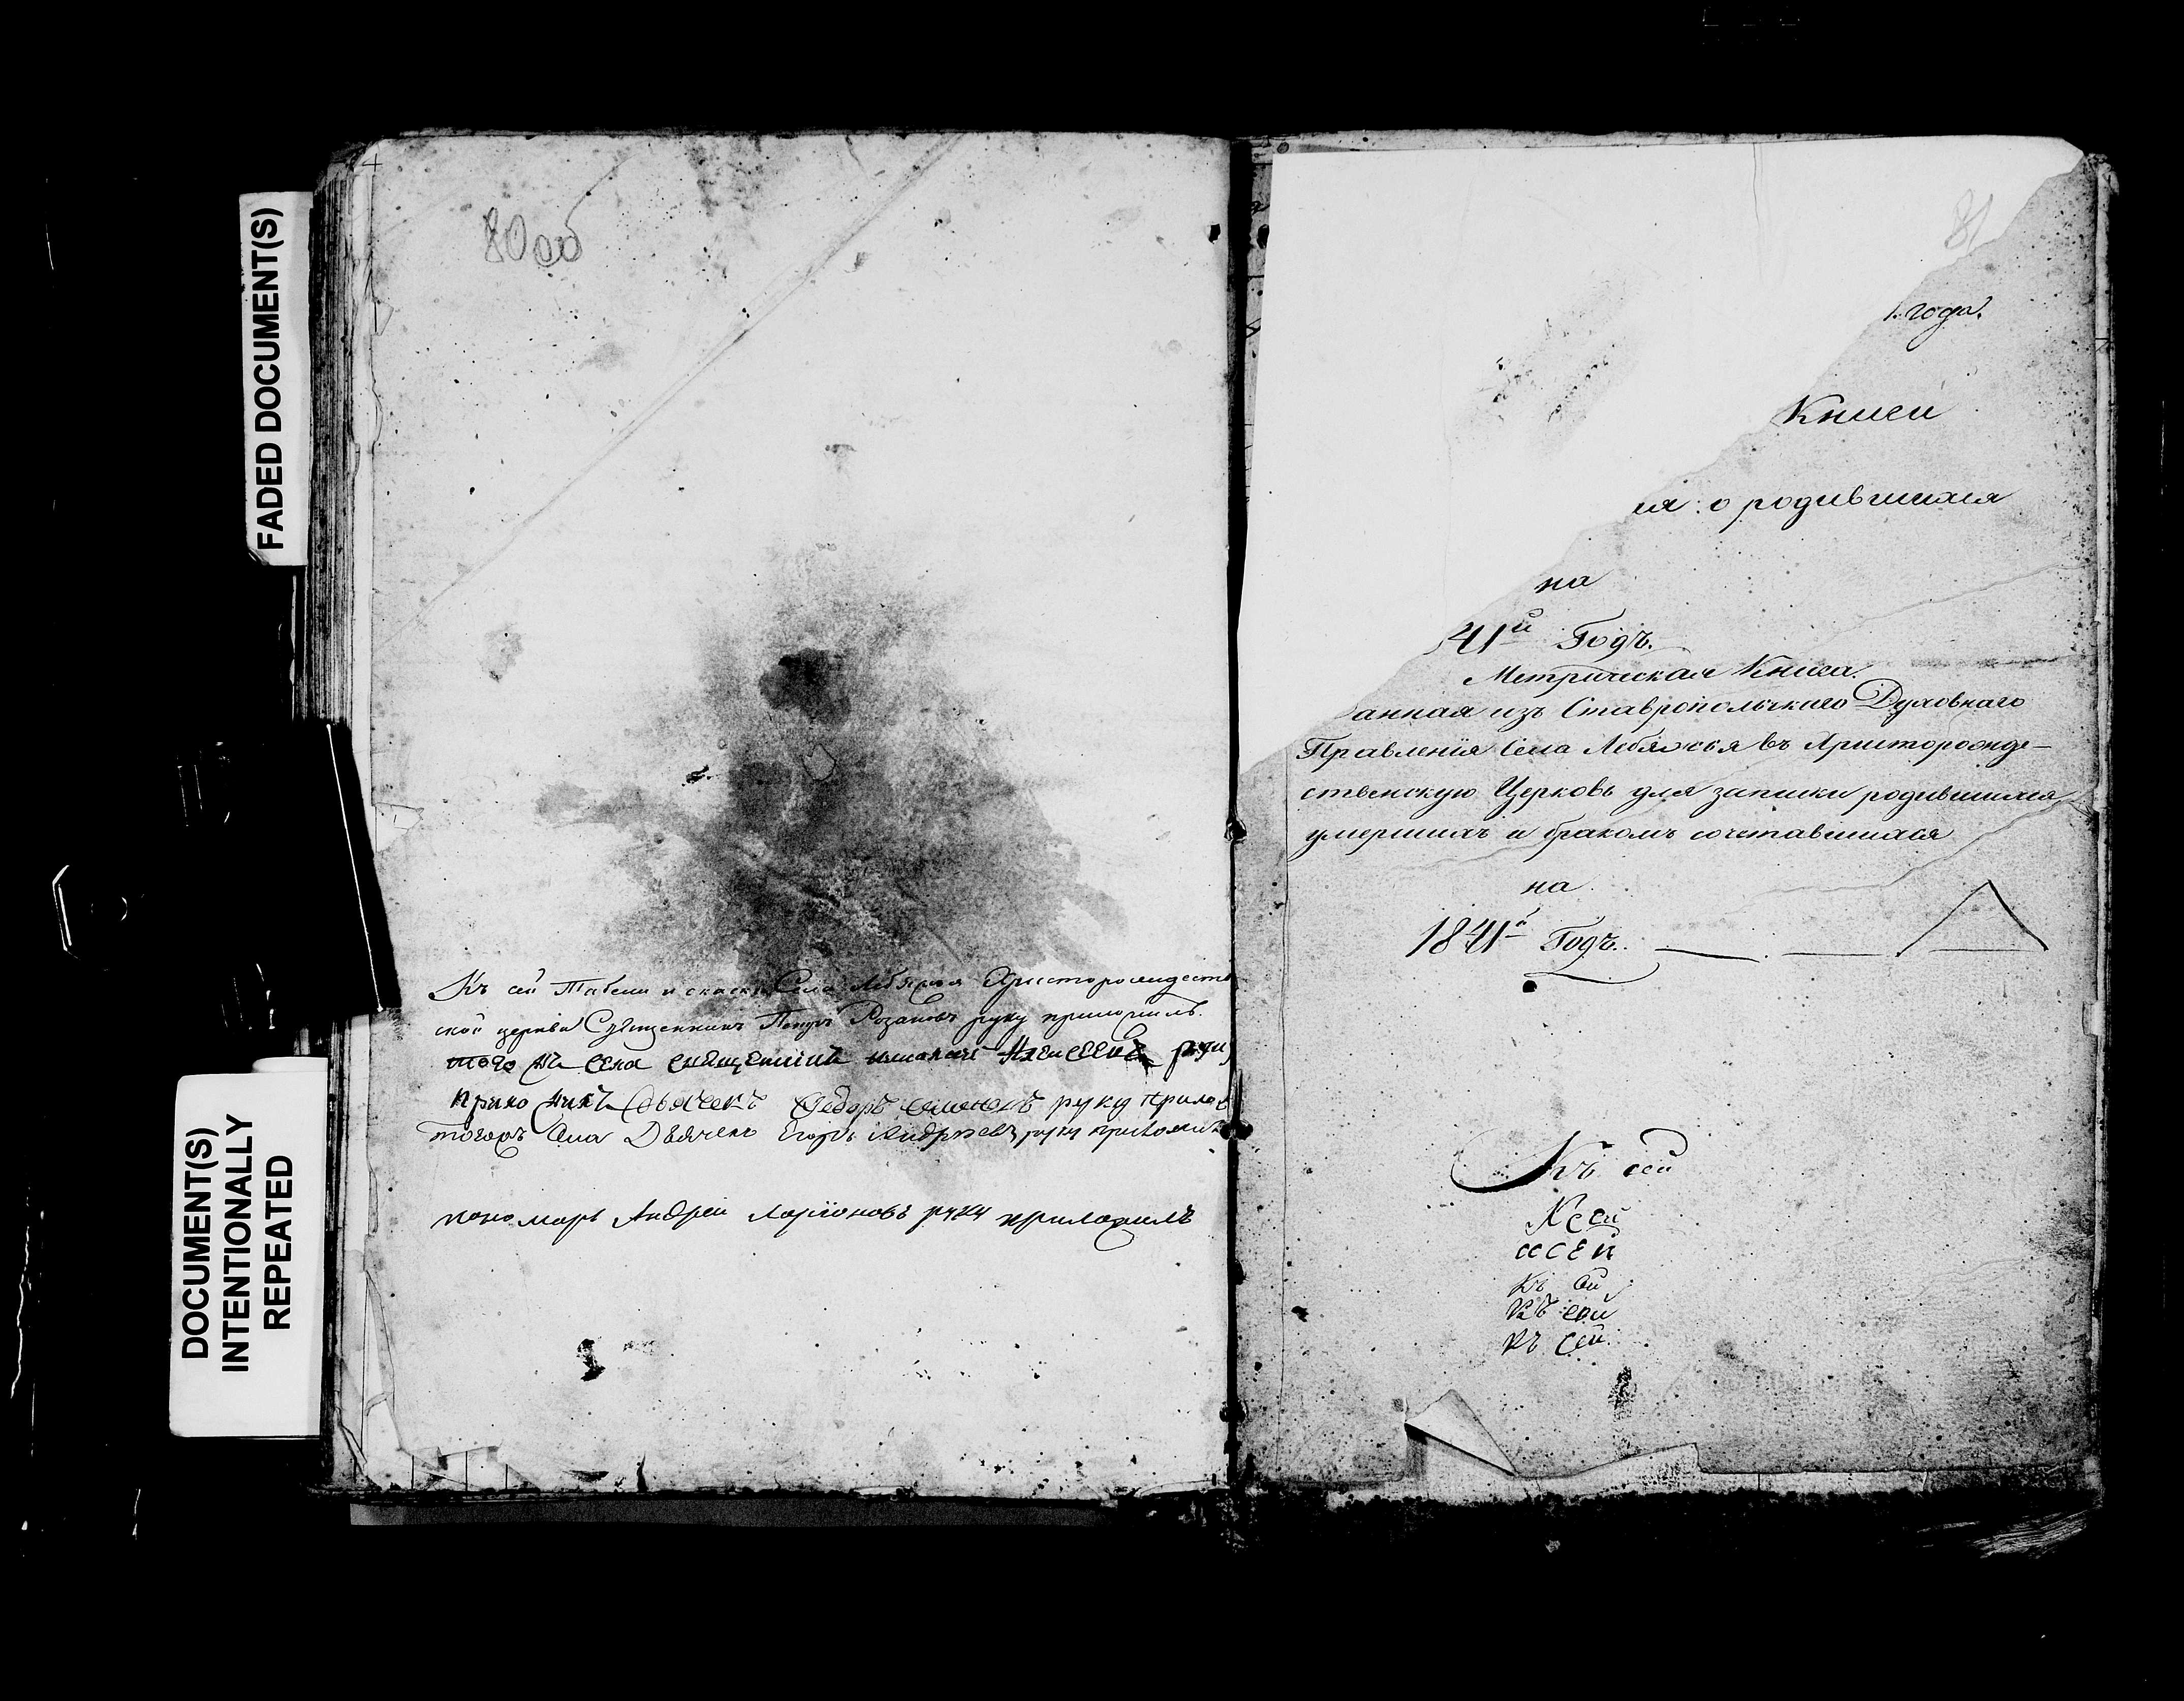 FADED DOCUMENT(S)
DOCUMENT(S)
INTENTIONALLY
REPEATED
80 об
Къ сей Табели и сказки Села Лебяжья Христорождеств
ской церкви Священникъ Петръ Розановъ руку приложилъ.
того жъ села священникъ Николай Алексеевъ руку
Дьячекъ Федоръ Семеновъ руку прилож
тогожъ села Дьячекъ Егоръ Андреевъ руку приложилъ
пономарь Андрей Ларіоновъ руку приложилъ
81
1. года.
Книги
ія о родившихся
на
41й Годъ.
Метрическая Книга.
анная изъ Ставропольскаго Духовнаго
Правленія Села Лебяжья въ Христорожде-
ственскую Церковь для записки родившихся
умершихъ и бракомъ сочетавшихся
на
1841й Годъ.
Къ сей
К сей
сей
Къ сей
Къ сей
Къ сей